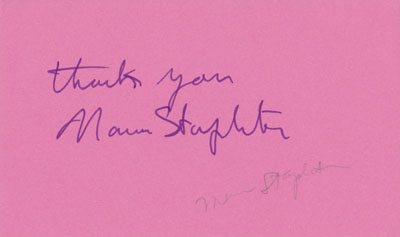 thank you
Maureen Stapleton
Stapleton